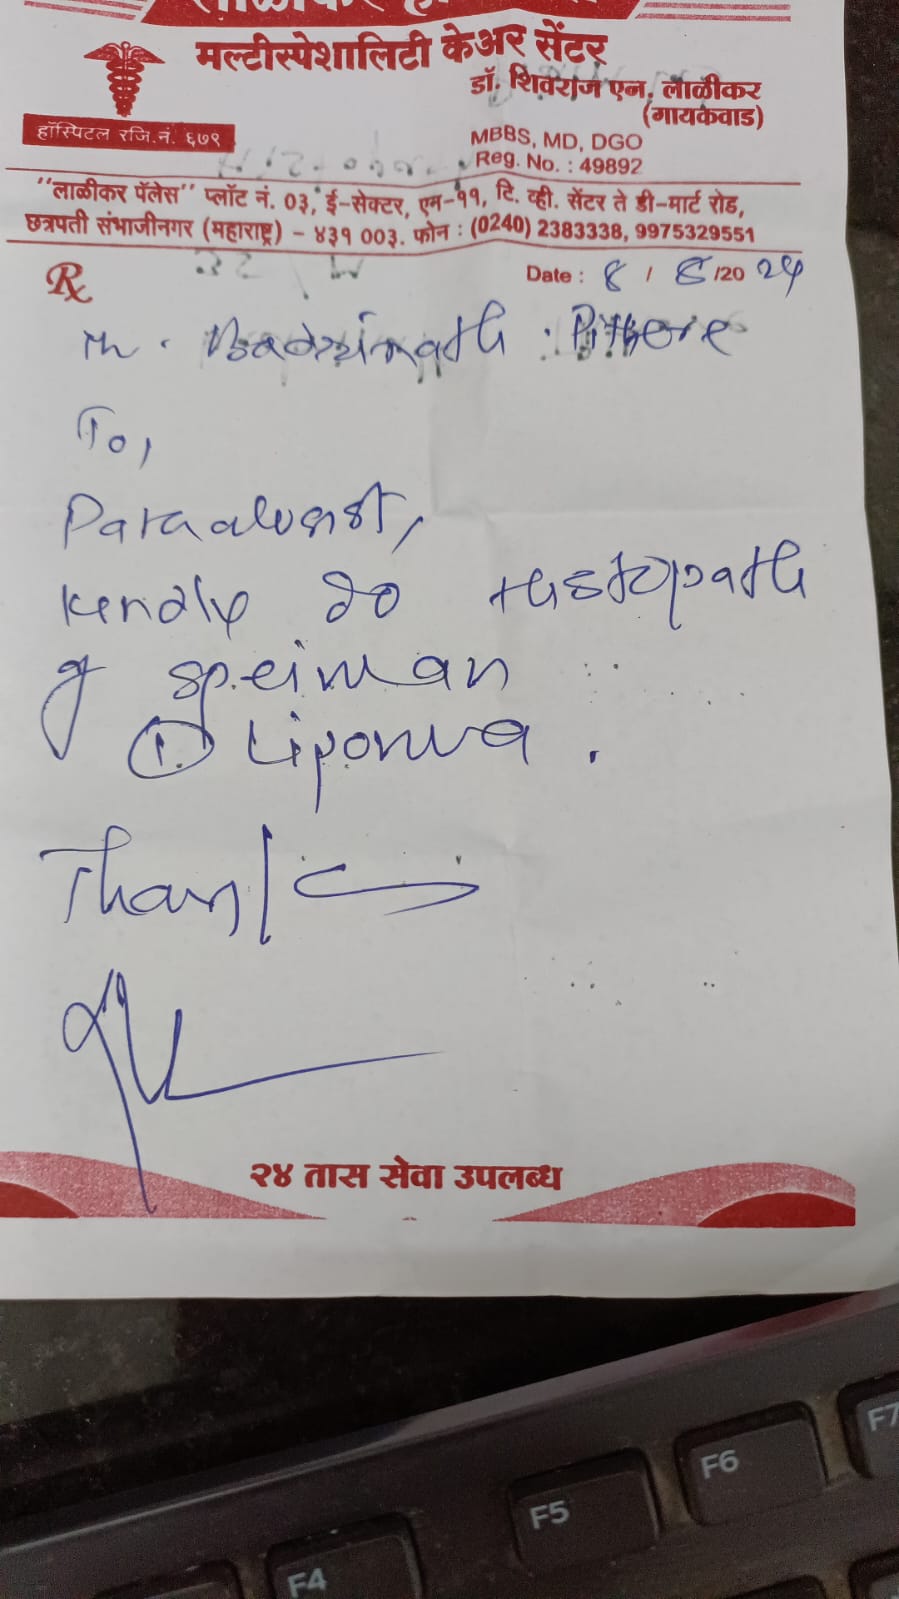 मल्टीस्पेशालिटी केअर सेंटर
डॉ. शिवराज एन. लाळीकर
(गायकवाड)
हॉस्पिटल रजि.नं. ६७९
MBBS, MD, DGO
Reg. No. : 49892
"लाळीकर पॅलेस" प्लॉट नं. 03, ई-सेक्टर, एन-११, टि. व्ही. सेंटर ते डी-मार्ट रोड,
छत्रपती संभाजीनगर (महाराष्ट्र) - ४३१ 003. फोन : (0240) 2383338, 9975329551
Rx
Date : 8 / 8 /20 24
Badrinath
To,
Kindly do Histopath
of speiman
① Lipoma.
Thanks
२४ तास सेवा उपलब्ध
F4
F5
F6
F7